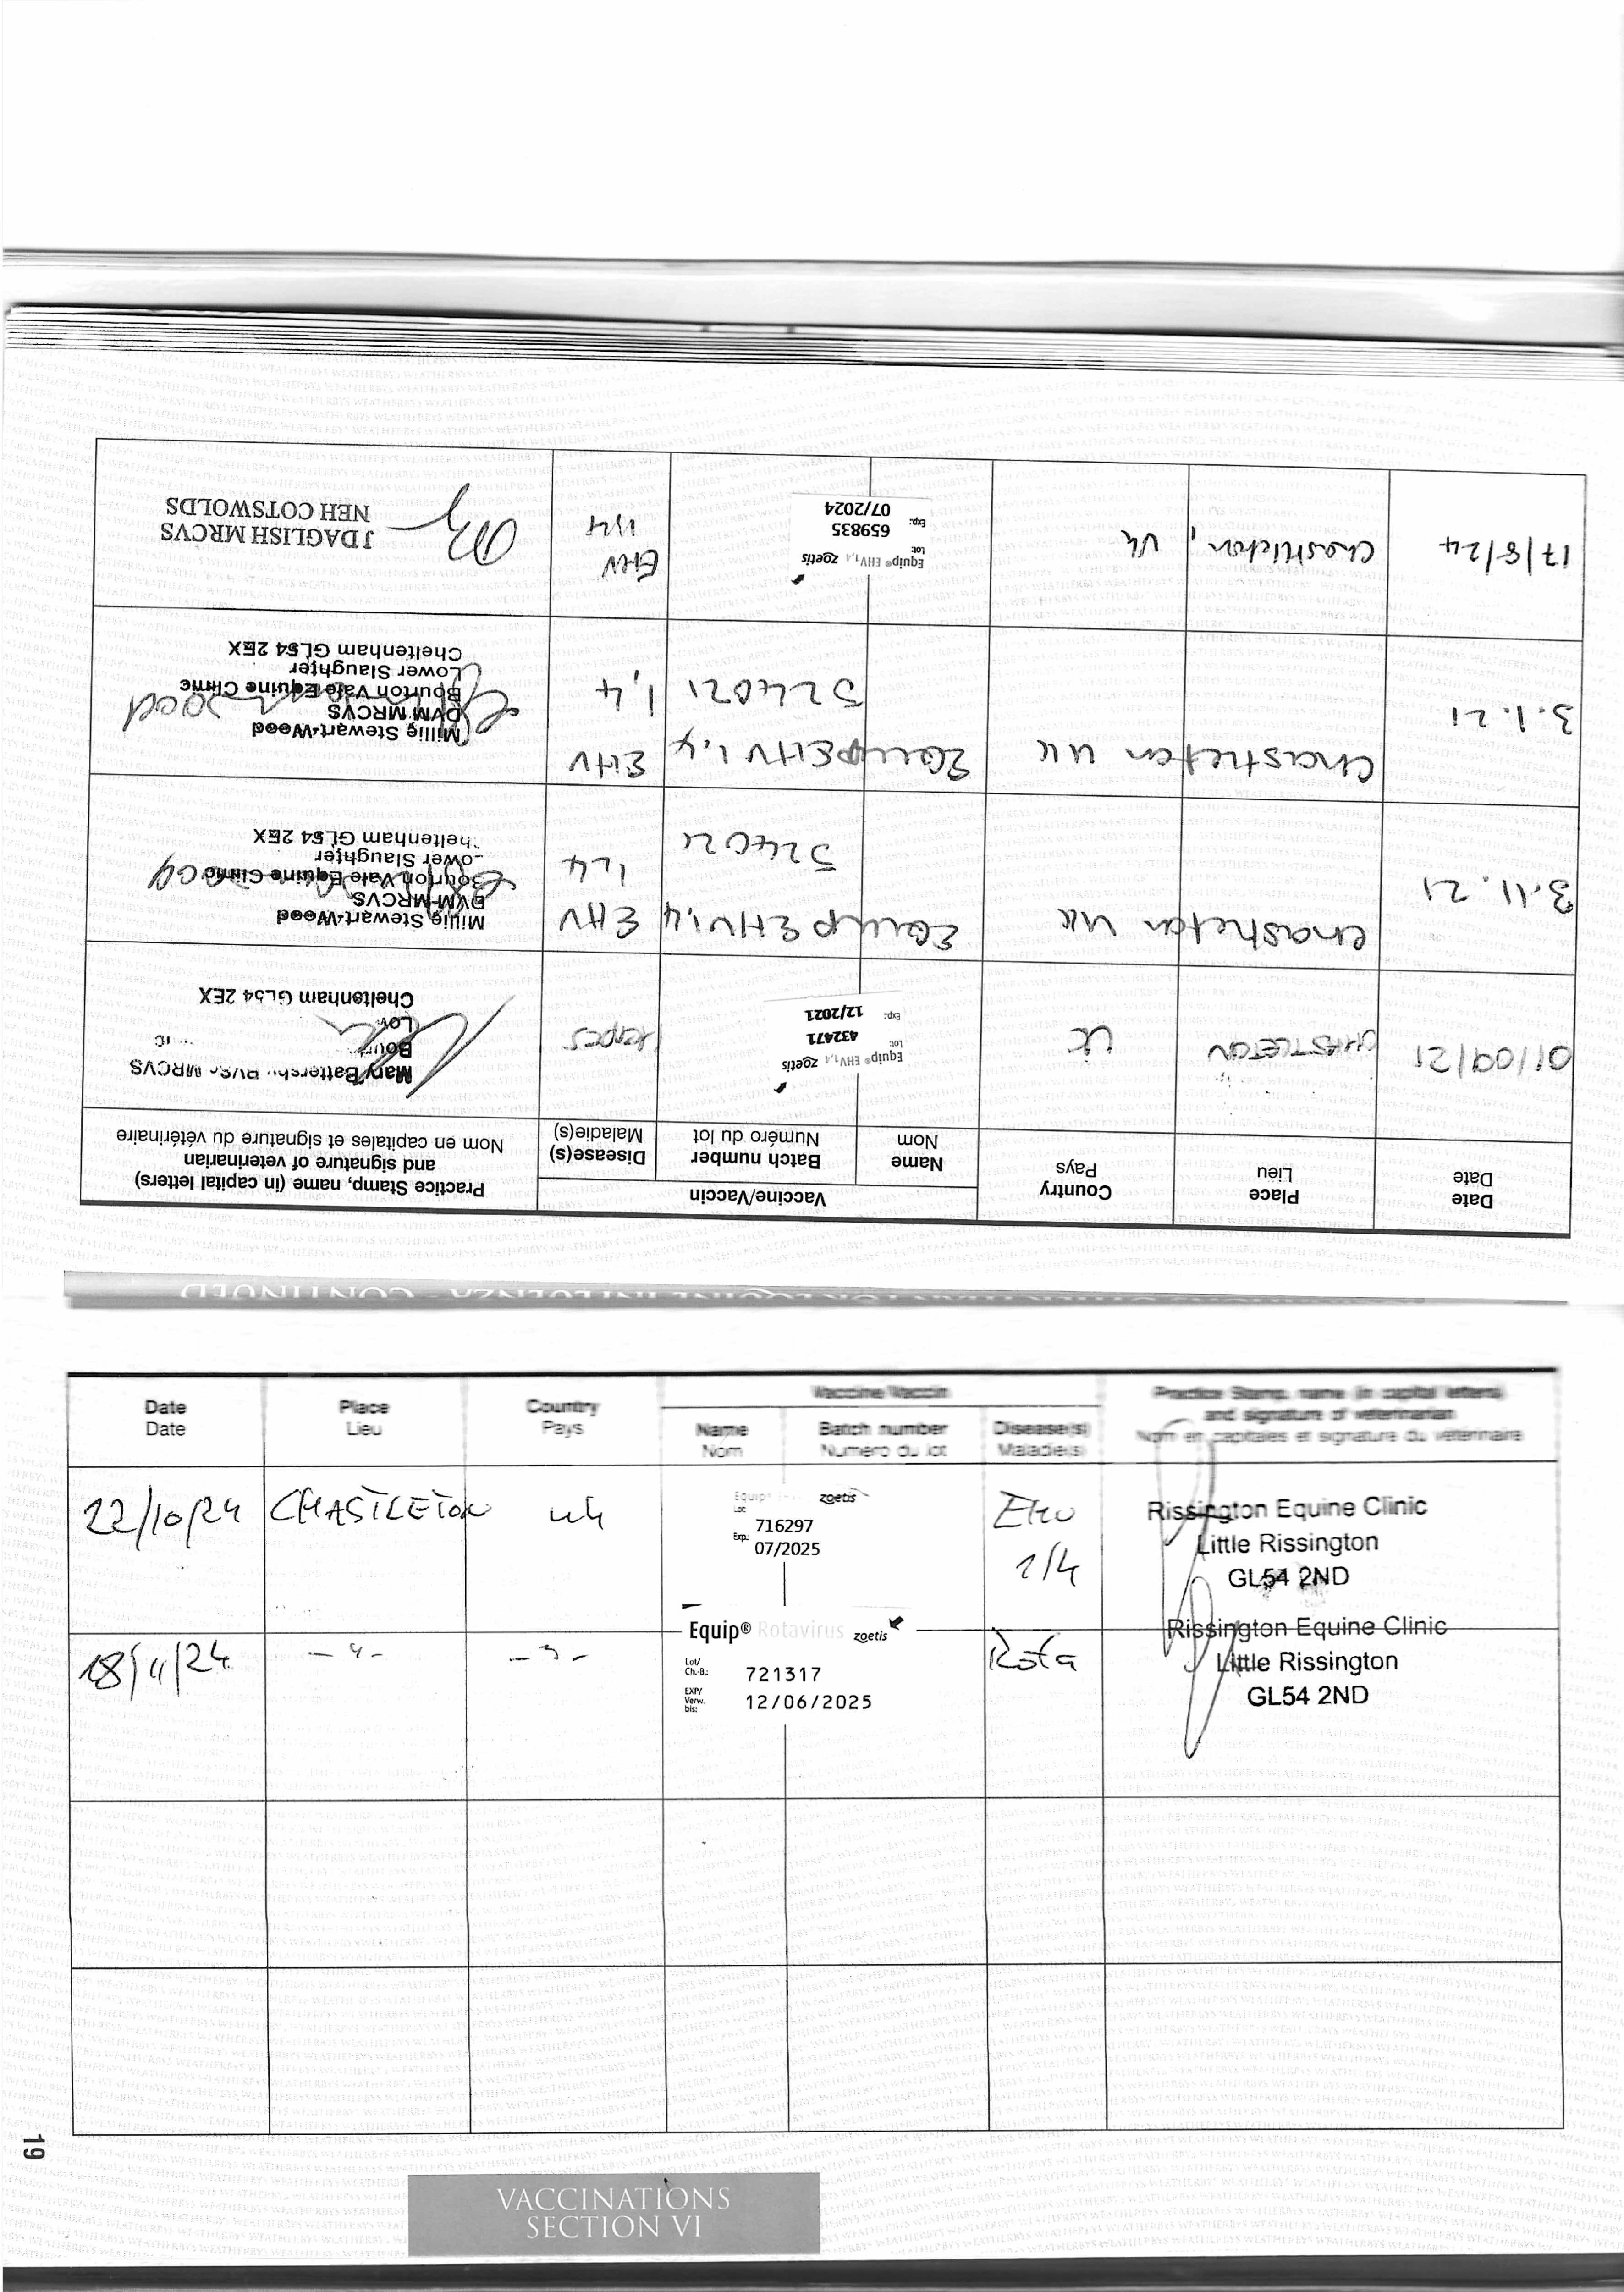 DISEASES OTHER THAN EQUINE INFLUENZA - CONTINUED
Date
Date
Place
Lieu
Country
Pays
Vaccine/Vaccin
Name
Nom
Batch number
Numéro du lot
Disease(s)
Maladie(s)
Practice Stamp, name (in capital letters)
and signature of veterinarian
Nom en capitales et signature du vétérinaire
01/09/21
CHASTLETON
UK
Equip® EHV1,4 zoetis
Lot 432471
Exp: 12/2021
Herpes
Mary Battersby BVSc MRCVS
Cheltenham GL54 2EX
3.11.21
Chastleton UK
Equip EHV 1,4
524021
EHV
1,4
Millie Stewart-Wood
DVM MRCVS
Bourton Vale Equine Clinic
Lower Slaughter
Cheltenham GL54 2EX
3.1.21
Chastleton UK
Equip EHV 1,4
524021
EHV
1,4
Millie Stewart-Wood
DVM MRCVS
Bourton Vale Equine Clinic
Lower Slaughter
Cheltenham GL54 2EX
17/8/24
Chastleton, UK
Equip® EHV1,4 zoetis
Lot 659835
Exp: 07/2024
EHV
1,4
J DAGLISH MRCVS
NEH COTSWOLDS
Date
Date
Place
Lieu
Country
Pays
Vaccine/Vaccin
Name
Nom
Batch number
Numéro du lot
Disease(s)
Maladie(s)
Practice Stamp, name (in capital letters)
and signature of veterinarian
Nom en capitales et signature du vétérinaire
22/10/24
CHASTLETON
uk
Equip® zoetis
Lot
716297
Exp: 07/2025
EHV
1/4
Rissington Equine Clinic
Little Rissington
GL54 2ND
18/11/24
- " -
- " -
Equip® Rotavirus zoetis
Lot/
Ch.-B.: 721317
EXP/
Verw.
bis: 12/06/2025
Rota
Rissington Equine Clinic
Little Rissington
GL54 2ND
19
VACCINATIONS
SECTION VI